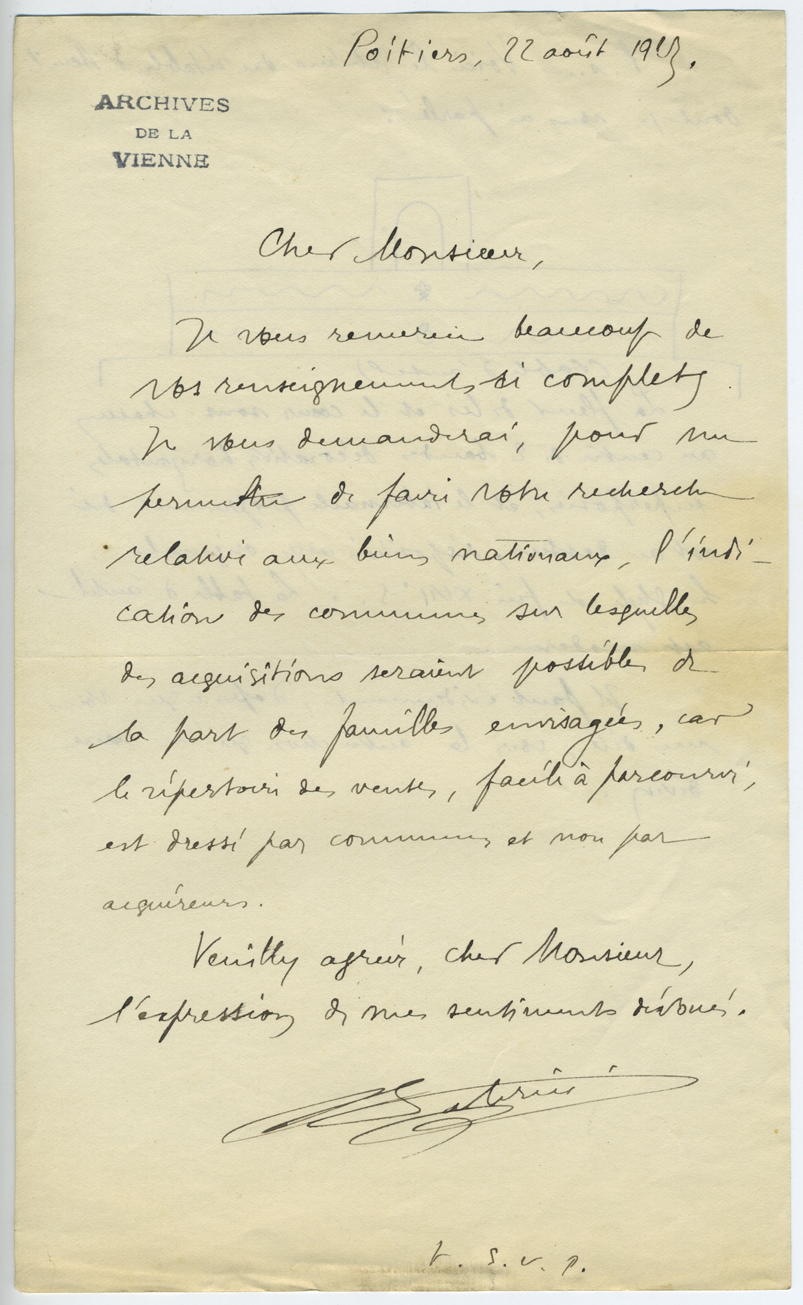 Poitiers, 22 août
ARCHIVES
DE LA
VIENNE
Cher Monsieur,
Je vous remercie beaucoup de
vos renseignements si complets.
Je vous demanderai, pour me
permettre de faire votre recherche
relative aux biens nationaux, l'indi-
cation des communes sur lesquelles
des acquisitions seraient possibles de
la part des familles envisagées, car
le répertoire des ventes, facile à parcourir,
est dressé par communes et non par
acquéreurs.
Veuillez agréer, cher Monsieur,
l'expression de mes sentiments dévoués.
t. s. v. p.